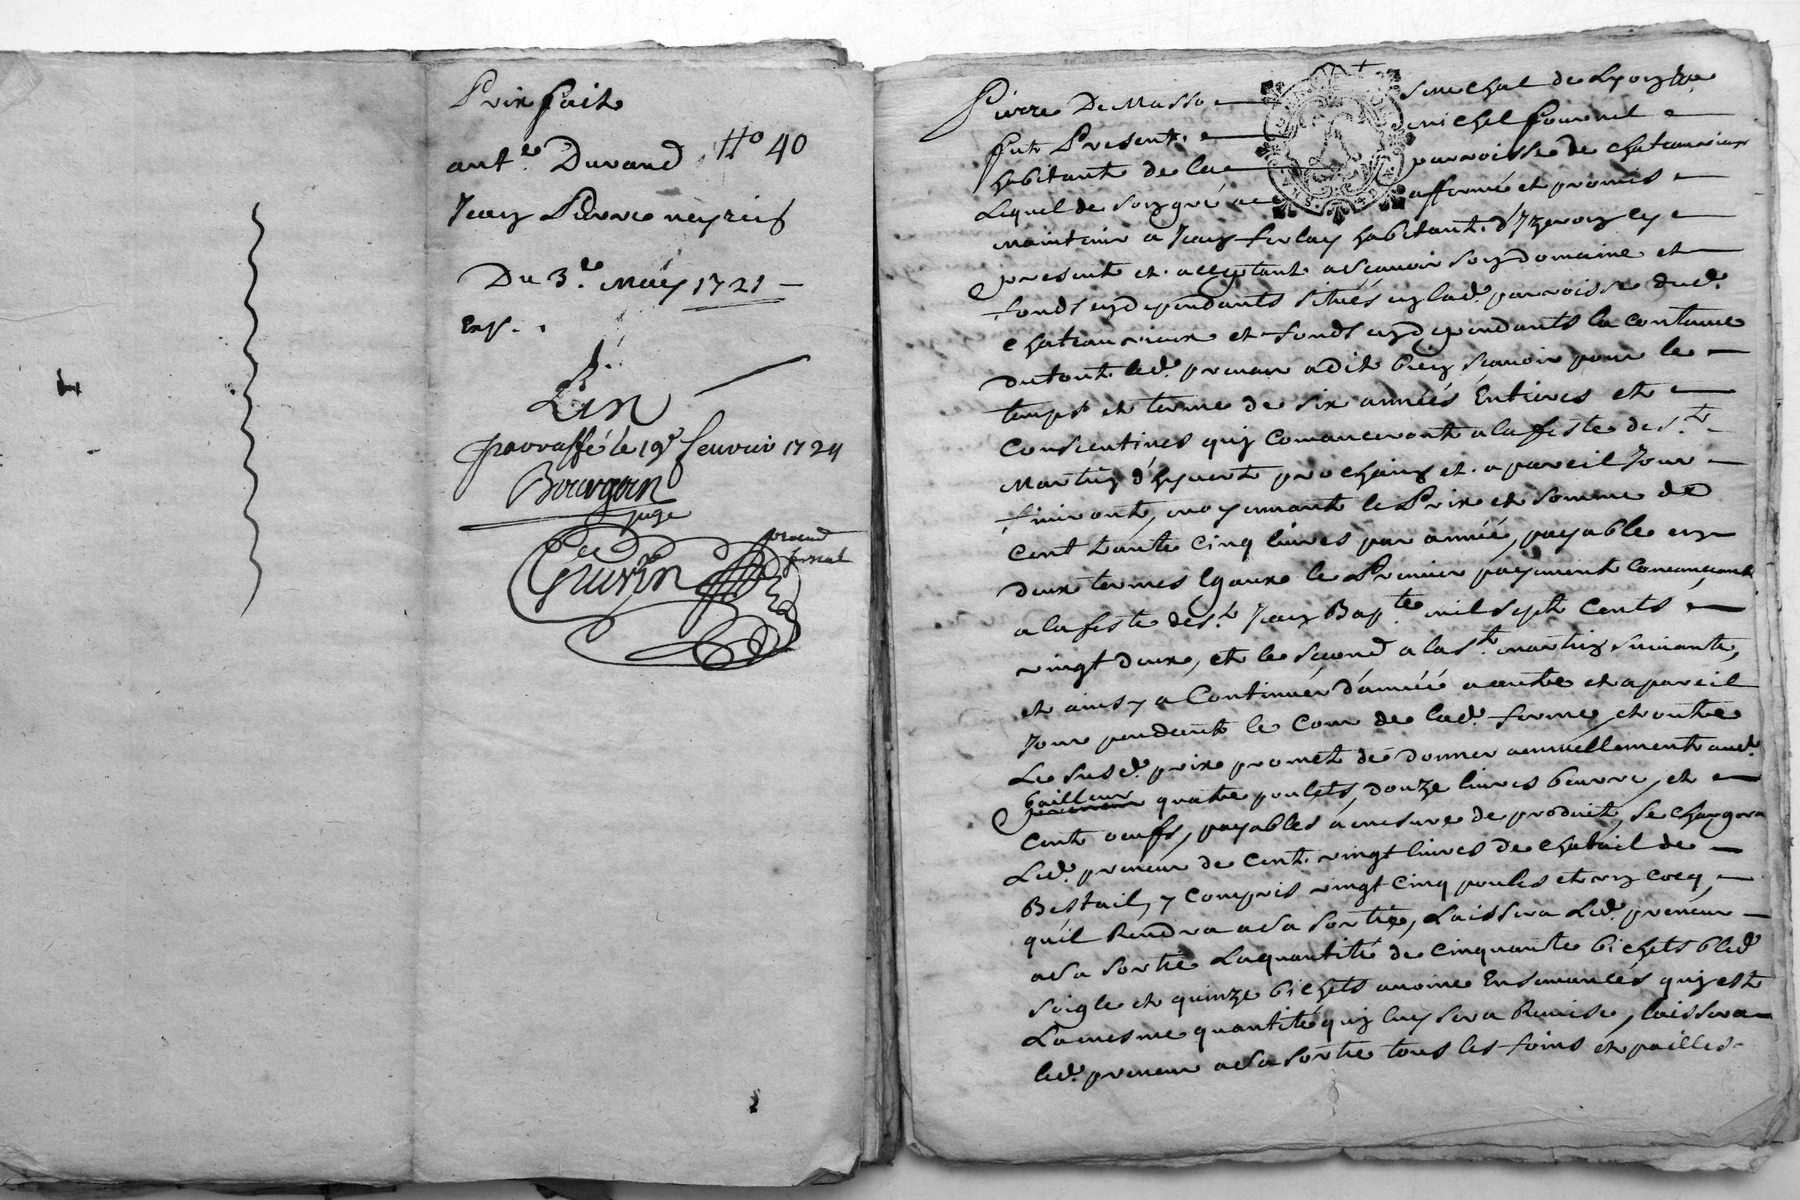 Prix fait
N° 40
ant.e Durand
Jean Pierre neyrieu
Du 3.e May 1721
Exp.
Fin
parraffé le 19e feuvrier 1724
Bourgoin
juge
Guerin
procur
fiscal
Pierre De Masso senechal de Lyon
fut Present michel fournel
habitant de la parroisse de chateauvieux
Lequel de son gré a affermé et promis
maintenir a Jean ferlay habitant d'Yzeron icy
present et acceptant a scavoir son domaine et
fonds en dependants situés en lad.e parroisse dud.
chateauvieux et fonds en dependants la contenue
dutout led. preneur a dit bien scavoir pour le
temps et terme de six années Entieres et
Consecutives quy comanceront a la feste de st
Martin d'hyvert prochain et a pareil Jour
finiront, moyennant le Prix et somme de
cent trante cinq livres par année, payable en
deux termes Egaux le Premier payement comançant
a la feste de st Jean Bapte mil sept cents
vingt deux, et le second a la st martin suivante,
et ainsy a Continuer d'année a autre et a pareil
Jour pendant le cour de lad.e ferme, et outre
Le susd. prix promet de donner annuellement aud.
bailleur quatre poulets, douze livres beurre, et
Cent oeufs, payables a mesure de produit, se chargera
Led. preneur de cent vingt livres de chatail de
Bestail, y compris vingt cinq poules et un cocq,
qu'il Rendra a sa sortie, Laissera Led. preneur
a sa sortie La quantité de cinquante bichets bled
seigle et quinze bichets avoine Ensemancés quy est
La mesme quantité quy luy sera Remise, laissera
led. preneur a sa sortie tous les foins et pailles